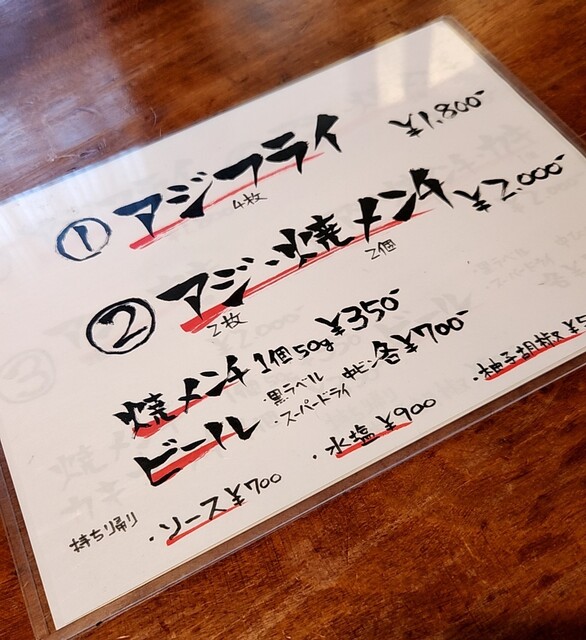 ① アジフライ ¥1,800-
4枚
② アジ・焼メンチ ¥2,000-
2枚 2個
焼メンチ 1個 50g ¥350-
ビール 黒ラベル スーパードライ 中 各¥700-
持ち帰り ・ソース ¥700 ・塩水 ¥900